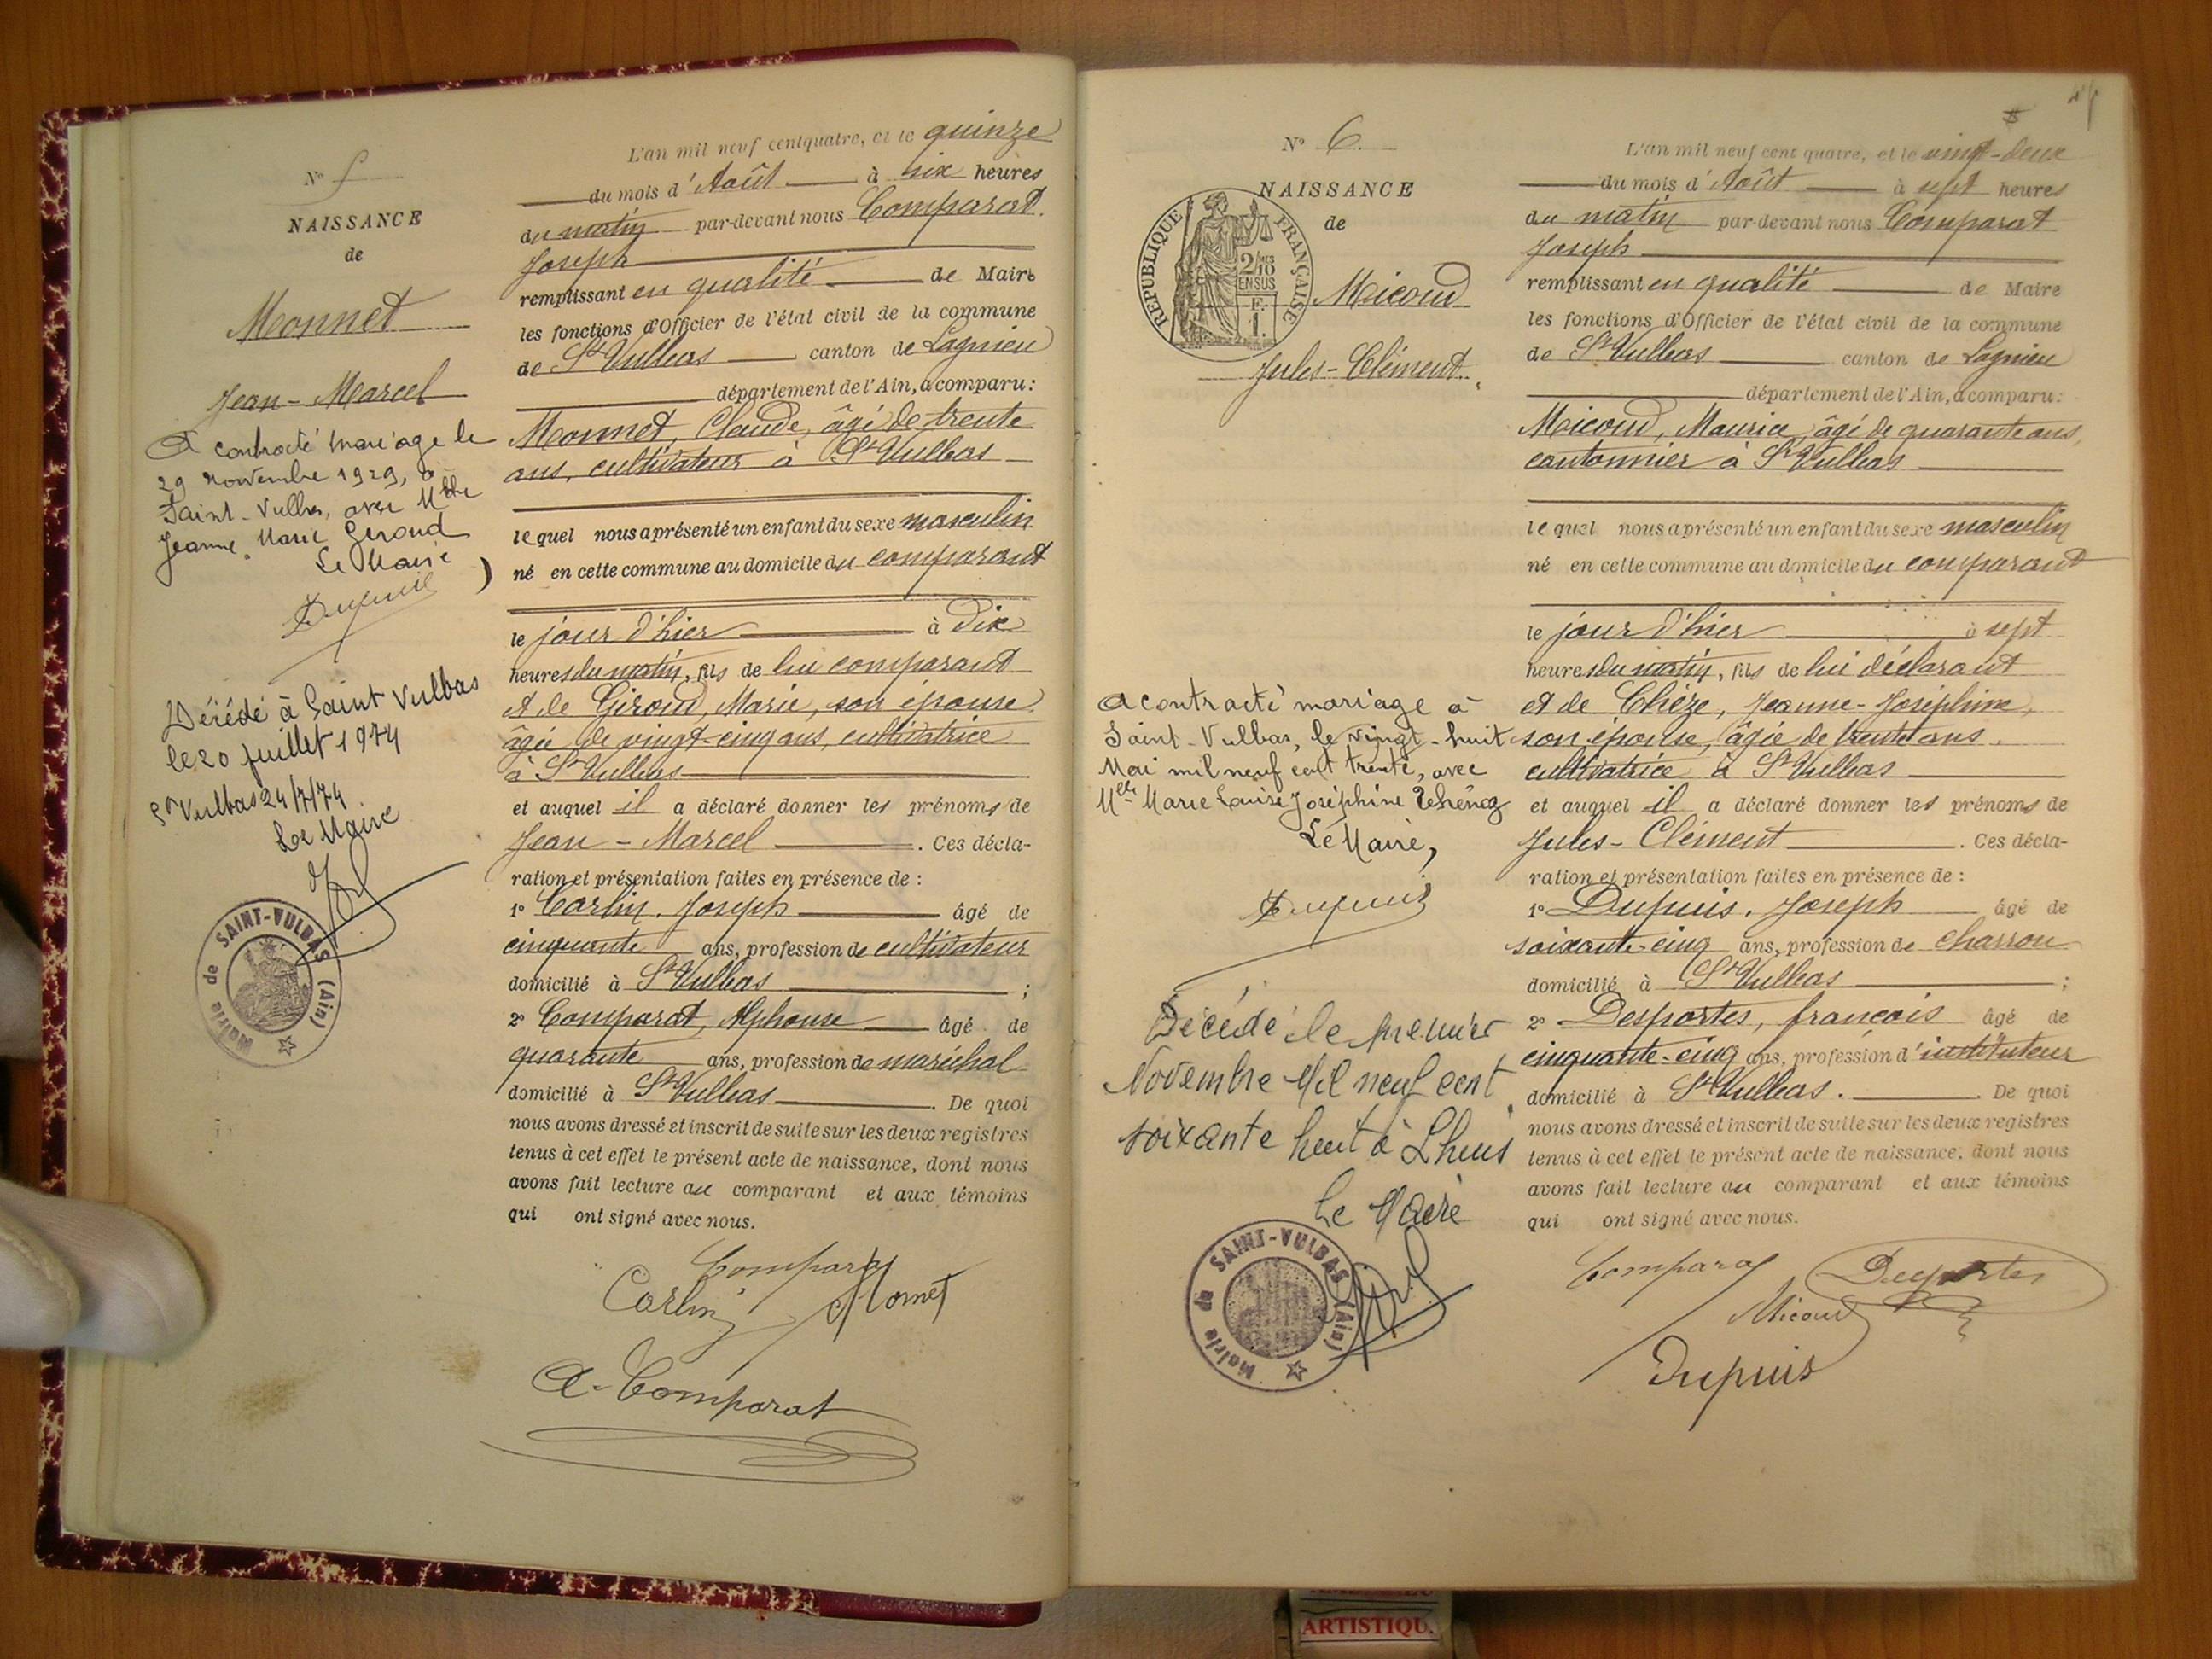 N° 5
NAISSANCE
de
Monnet
Jean-Marcel
A contracté mariage le
29 Novembre 1929, à
Saint-Vulbas, avec Melle
Jeanne Marie Giroud
Le Maire
Dupuis
Décédé à Saint Vulbas
le 20 juillet 1974
St Vulbas 24/7/74
Le Maire
Mairie de SAINT-VULBAS (Ain)
L'an mil neuf cent quatre, et le quinze
du mois d'Août à six heures
du matin par-devant nous Comparat
Joseph
remplissant en qualité de Maire
les fonctions d'Officier de l'état civil de la commune
de St Vulbas canton de Lagnieu
département de l'Ain, a comparu:
Monnet, Claude, âgé de trente
ans, cultivateur à St Vulbas
lequel nous a présenté un enfant du sexe masculin
né en cette commune au domicile du comparant
le jour d'hier à dix
heures du matin, fils de lui comparant
et de Giroud, Marie, son épouse
âgée de vingt-cinq ans, cultivatrice
à St Vulbas
et auquel il a déclaré donner les prénoms de
Jean-Marcel . Ces décla-
ration et présentation faites en présence de :
1° Carlin, Joseph âgé de
cinquante ans, profession de cultivateur
domicilié à St Vulbas ;
2° Comparat, Alphonse âgé de
quarante ans, profession de maréchal
domicilié à St Vulbas . De quoi
nous avons dressé et inscrit de suite sur les deux registres
tenus à cet effet le présent acte de naissance, dont nous
avons fait lecture au comparant et aux témoins
qui ont signé avec nous.
Comparat
Carlin Monnet
A. Comparat
N° 6.
NAISSANCE
de
REPUBLIQUE FRANÇAISE
2/10 EN SUS
Micoud
Jules-Clément.
A contracté mariage à
Saint-Vulbas, le vingt-huit
Mai mil neuf cent trente, avec
Melle Marie Louise Joséphine
Le Maire,
Dupuis
Décédé le premier
Novembre Mil neuf cent
soixante huit à Lhuis
Le Maire
Mairie de SAINT-VULBAS (Ain)
L'an mil neuf cent quatre, et le vingt-deux
du mois d'Août à sept heures
du matin par-devant nous Comparat
Joseph
remplissant en qualité de Maire
les fonctions d'Officier de l'état civil de la commune
de St Vulbas canton de Lagnieu
département de l'Ain, a comparu:
Micoud, Maurice, âgé de quarante ans,
cantonnier à St Vulbas
lequel nous a présenté un enfant du sexe masculin
né en cette commune au domicile du comparant
le jour d'hier à sept
heures du matin, fils de lui déclarant
et de Chèze, Jeanne-Joséphine,
son épouse, âgée de trente ans.
cultivatrice à St Vulbas
et auquel il a déclaré donner les prénoms de
Jules-Clément . Ces décla-
ration et présentation faites en présence de :
1° Dupuis, Joseph âgé de
soixante-cinq ans, profession de charron
domicilié à St Vulbas ;
2° Desportes, françois âgé de
cinquante-cinq ans, profession d'instituteur
domicilié à St Vulbas. . De quoi
nous avons dressé et inscrit de suite sur les deux registres
tenus à cet effet le présent acte de naissance, dont nous
avons fait lecture au comparant et aux témoins
qui ont signé avec nous.
Comparat Desportes
Micoud
Dupuis
ARTISTIQU